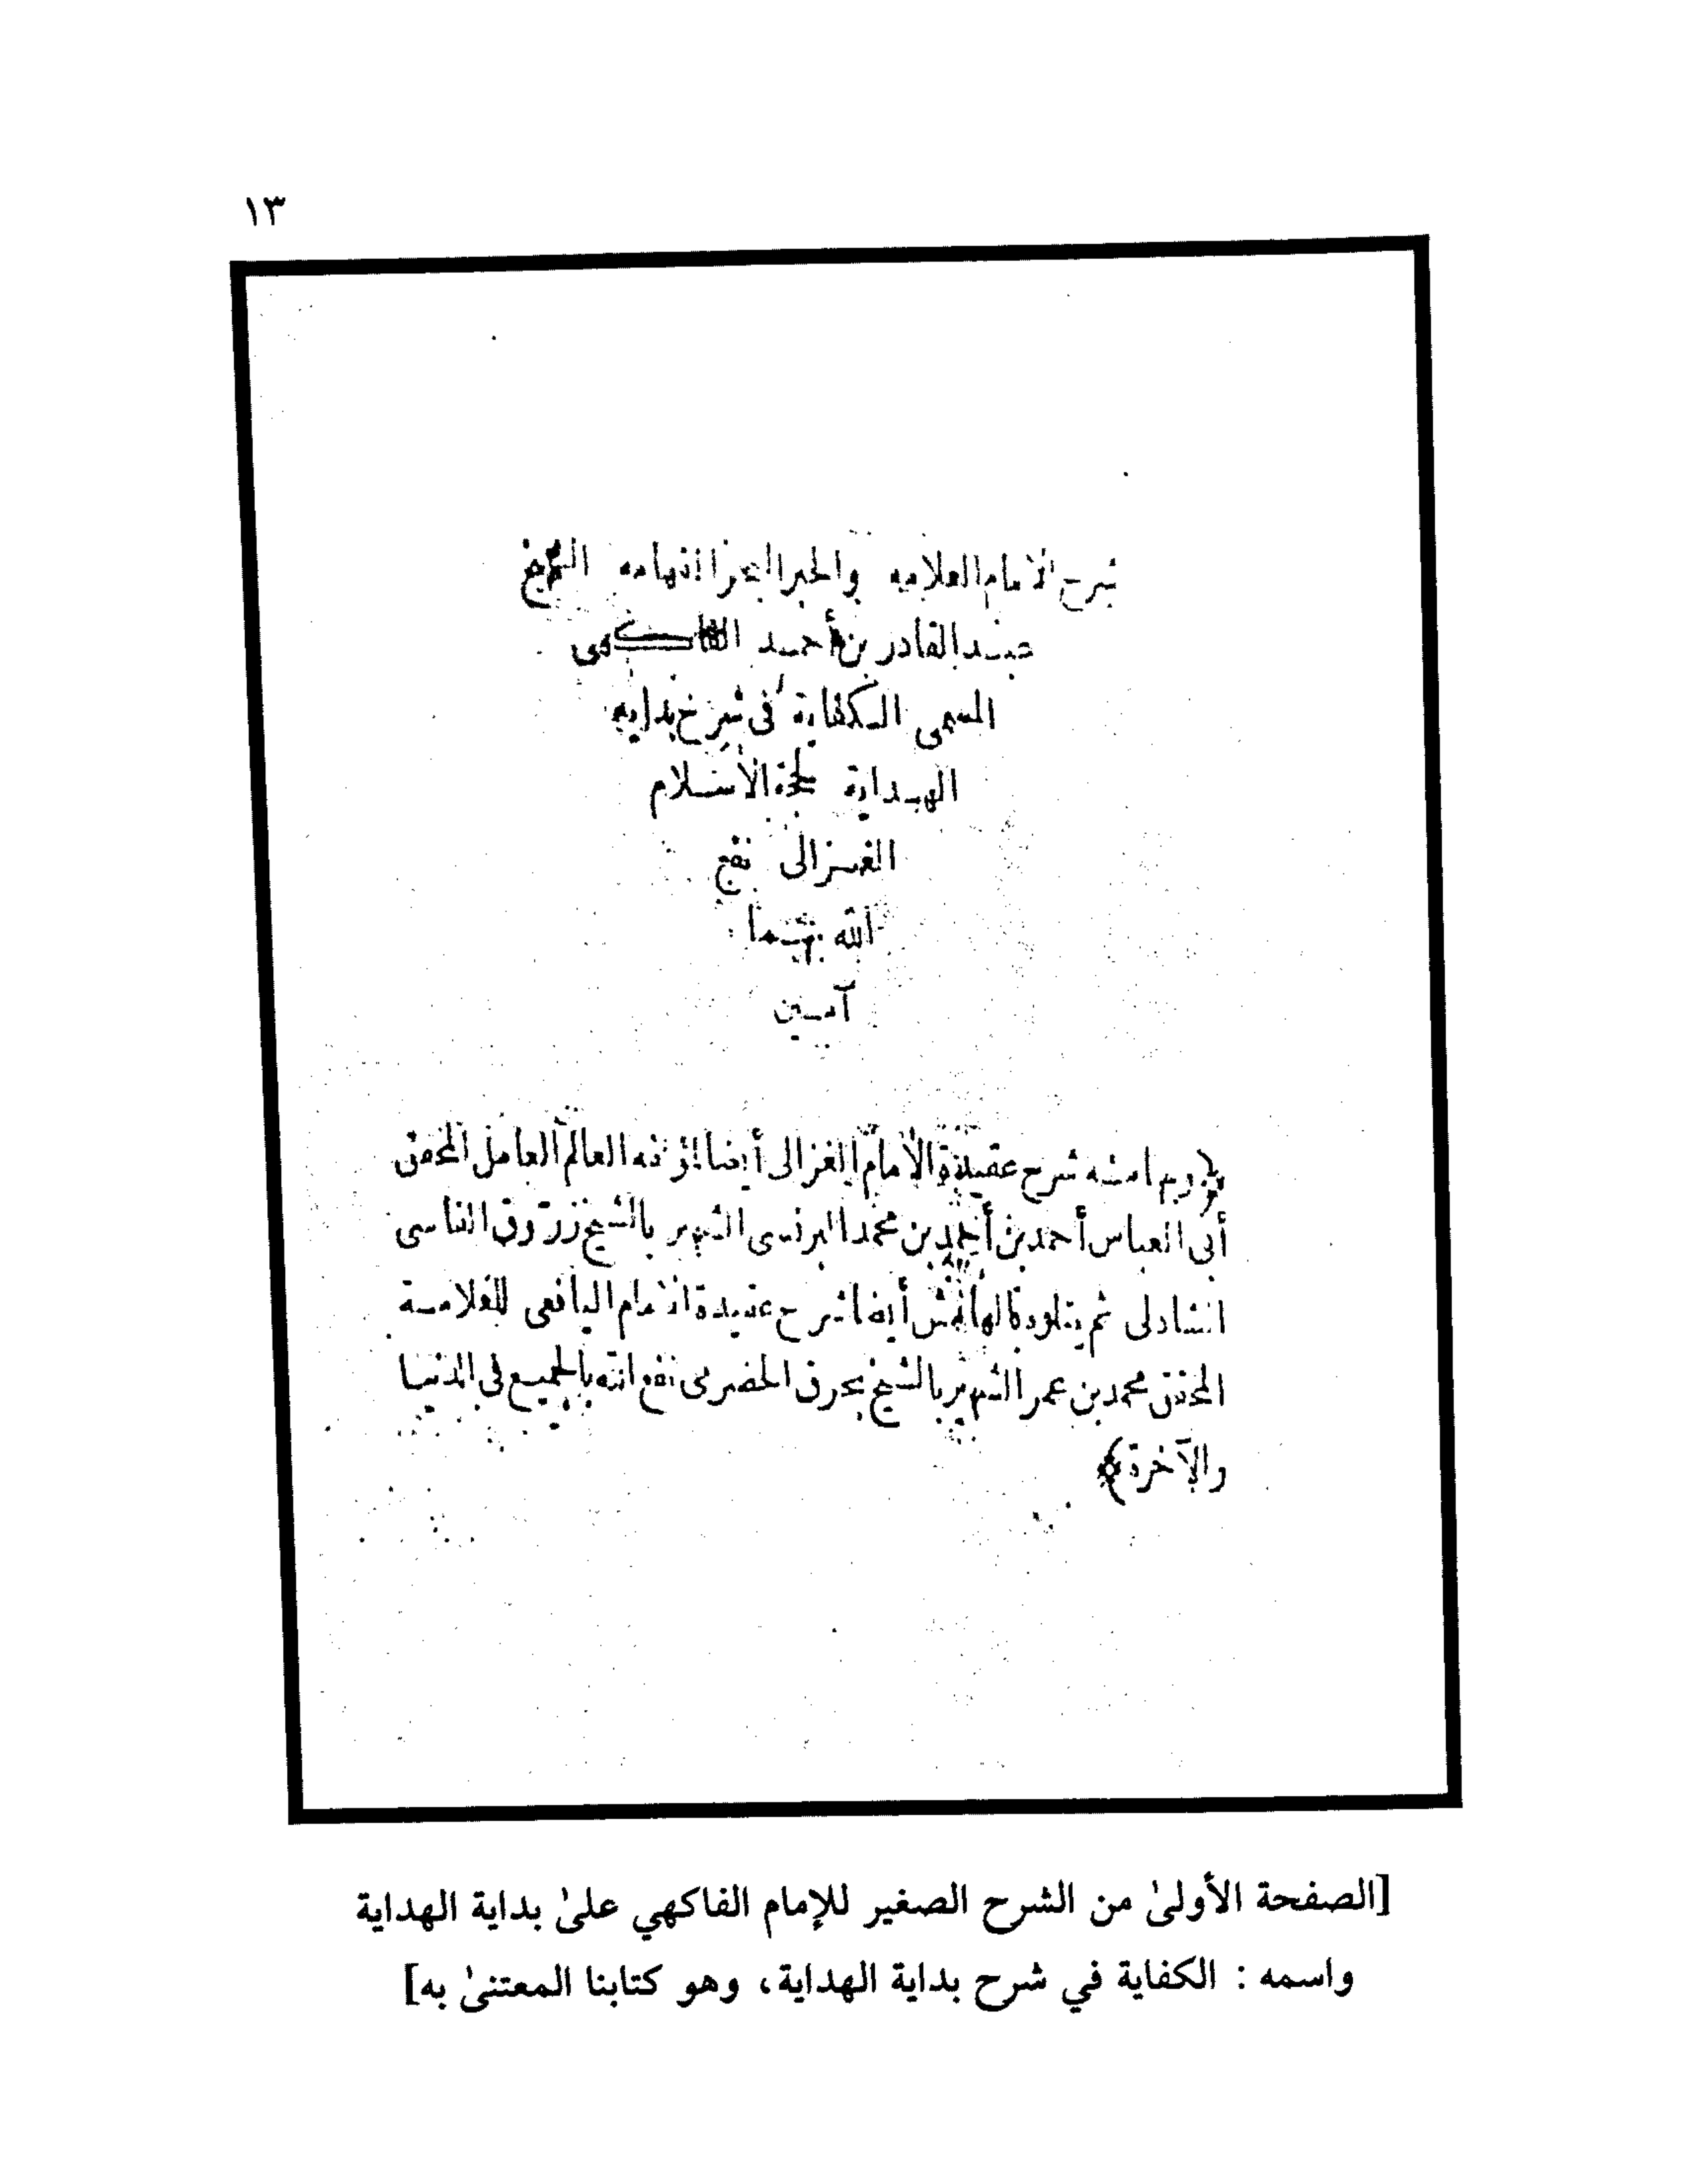 ١٣
شرح الامام العلامه والحبر البحر الفهامه الشيخ
عبد القادر بن أحمد الفاكهى
المسمى الكفاية فى شرح بداية
الهداية لحجة الاسلام
الغزالى نفع
الله بهما
آمين
﴿وبهامشه شرح عقيدة الامام الغزالى أيضا لمؤلفه العالم العامل المحقق
أبى العباس أحمد بن أحمد بن محمد البرنسى الشهير بالشيخ زروق الفاسى
الشاذلى ثم يتلوه بالهامش أيضا شرح عقيدة الامام اليافعى للعلامة
المحقق محمد بن عمر الشهير بالشيخ بحرق الحضرمى نفع الله بالجميع فى الدنيا
والآخرة﴾
[الصفحة الأولىٰ من الشرح الصغير للإمام الفاكهي علىٰ بداية الهداية
واسمه : الكفاية في شرح بداية الهداية، وهو كتابنا المعتنىٰ به]